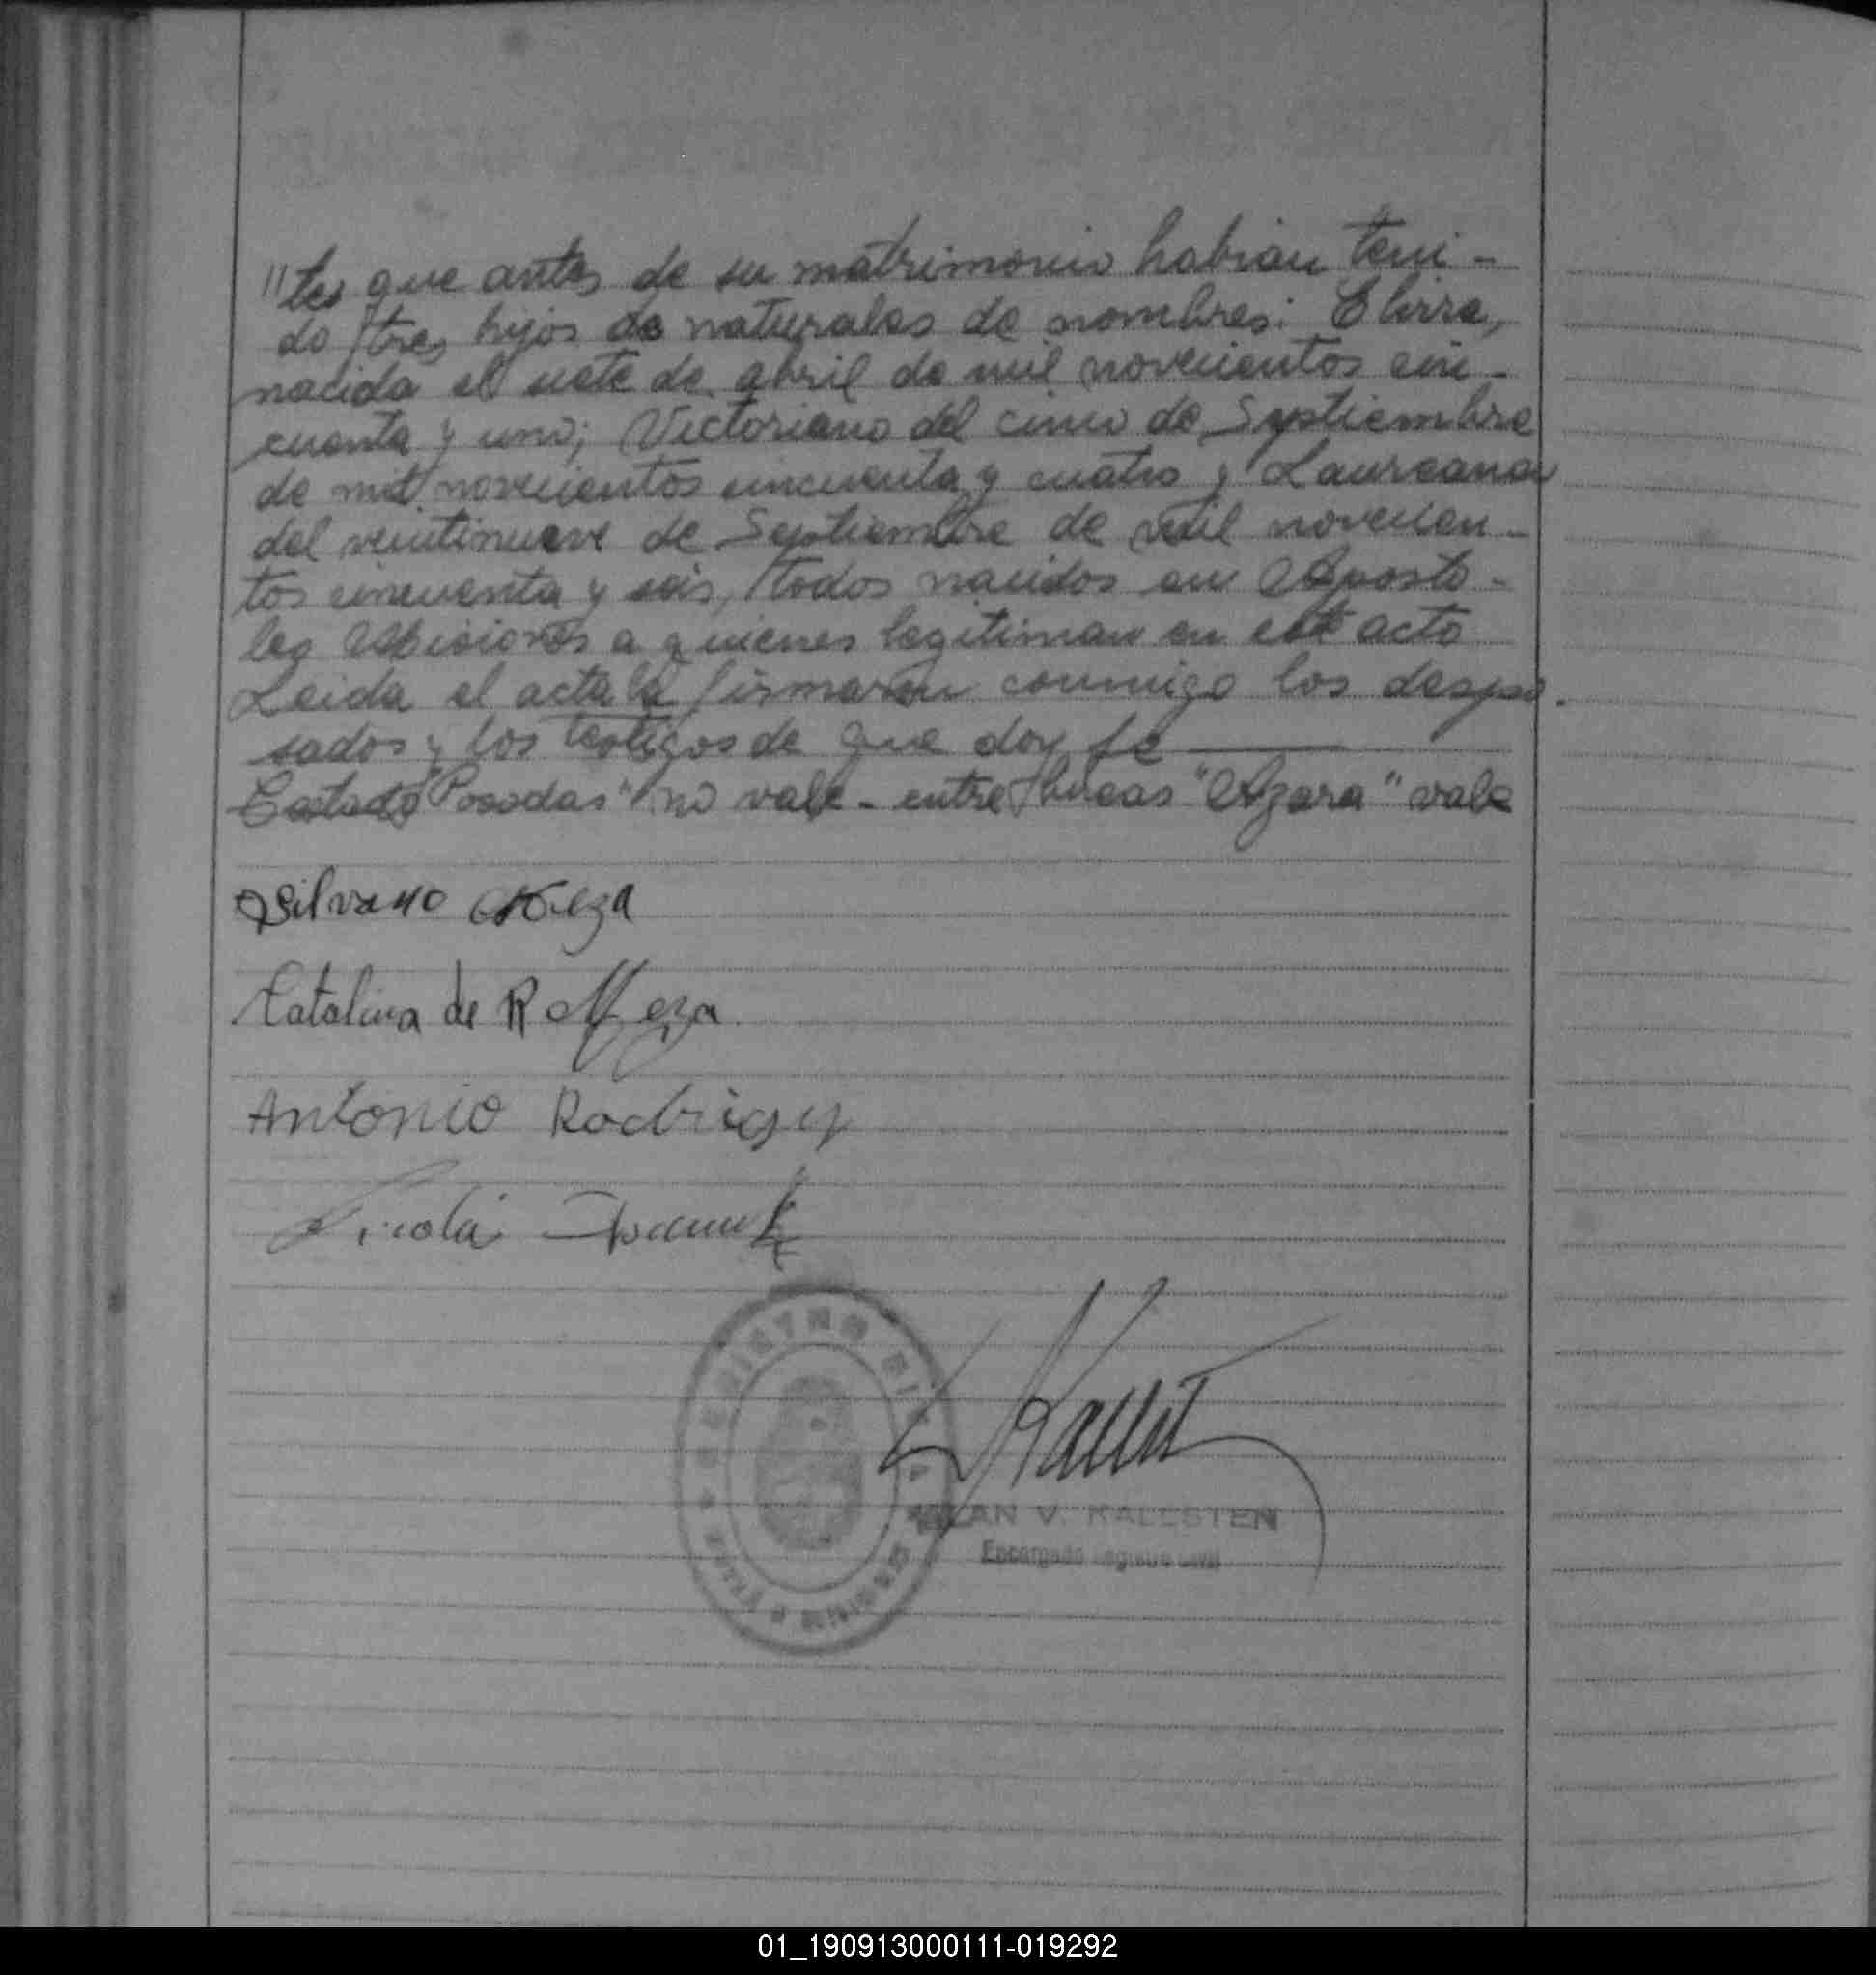 "tes que antes de su matrimonio habian teni-
do tres hijos de naturales de nombres: Elvira,
nacida el siete de abril de mil novecientos cin-
cuenta y uno; Victoriano del cinco de Septiembre
de mil novecientos cincuenta y cuatro y Laureana
del veintinueve de Septiembre de mil novecien-
tos cincuenta y seis, todos nacidos en Aposto-
les Misiones a quienes legitiman en este acto
Leida el acta la firmaron conmigo los despo-
sados y los testigos de que doy fe
"Posadas" no vale - entre lineas "Azara" vale
Silvano Meza
Catalina de R Meza
Antonio Rodriguez
Nicolá
REGISTRO CIVIL
V. KALLSTEN
Encargado Registro Civil
01_190913000111-019292